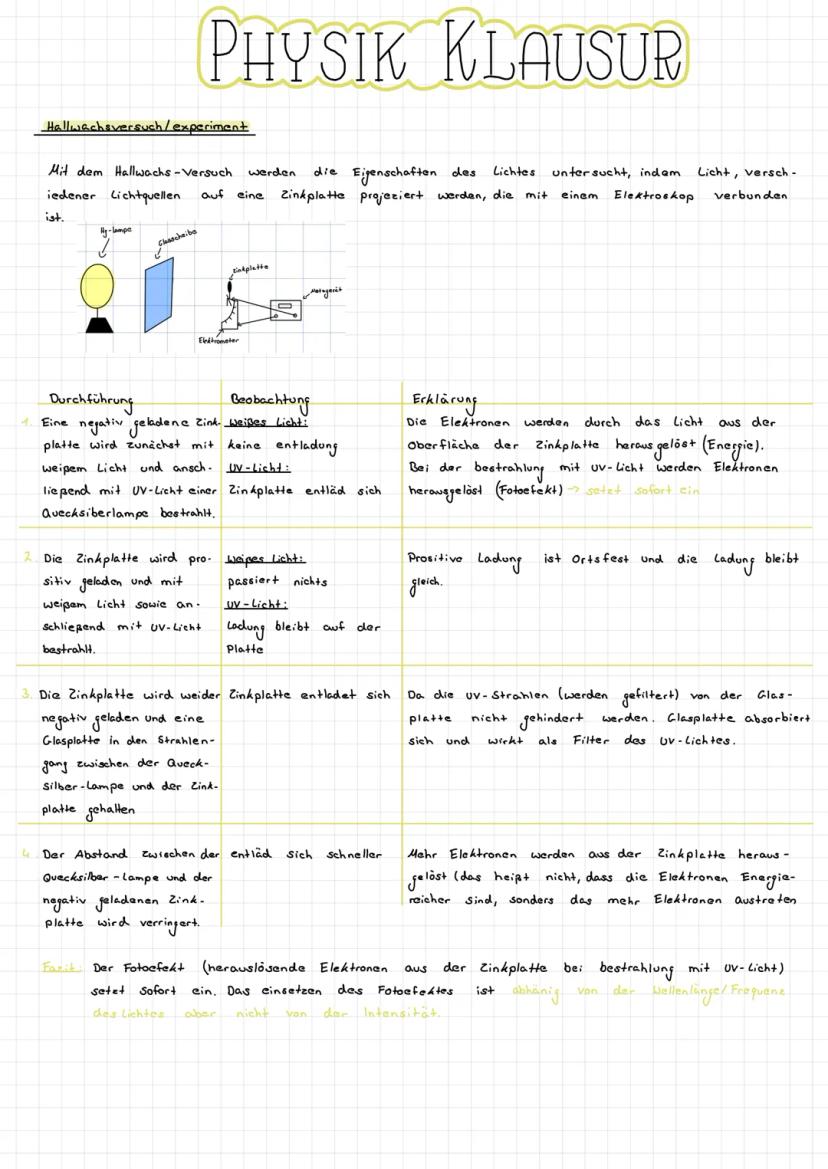 PHYSIK KLAUSUR
Hallwachsversuch/experiment
Mit dem Hallwachs-Versuch werden die Eigenschaften des Lichtes untersucht, indem Licht, versch-
iedener Lichtquellen auf eine Zinkplatte projeziert werden, die mit einem Elektroskop verbunden
ist.
Hg-lampe
Glasscheibe
Zinkplatte
Messgerät
Elektrometer
Durchführung
1. Eine negativ geladene Zink-
platte wird zunächst mit
weißem Licht und ansch-
ließend mit UV-Licht einer
Quecksiberlampe bestrahlt.
Beobachtung
weißes Licht:
keine entladung
UV-Licht:
Zinkplatte entläd sich
Erklärung
Die Elektronen werden durch das Licht aus der
Oberfläche der Zinkplatte heraus gelöst (Energie).
Bei der bestrahlung mit UV-Licht werden Elektronen
herausgelöst (Fotoefekt) → setzt sofort ein
2. Die Zinkplatte wird pro-
sitiv geladen und mit
weißem Licht sowie an-
schließend mit UV-Licht
bestrahlt.
weißes Licht:
passiert nichts
UV-Licht:
Ladung bleibt auf der
Platte
Prositive Ladung ist Ortsfest und die Ladung bleibt
gleich.
3. Die Zinkplatte wird weider
negativ geladen und eine
Glasplatte in den Strahlen-
gang zwischen der Queck-
silber-Lampe und der Zink-
platte gehalten
Zinkplatte entladet sich
Da die UV-Strahlen (werden gefiltert) von der Glas-
platte nicht gehindert werden. Glasplatte absorbiert
sich und wirkt als Filter des UV-Lichtes.
4. Der Abstand zwischen der
Quecksilber-Lampe und der
negativ geladenen Zink-
platte wird verringert.
entläd sich schneller
Mehr Elektronen werden aus der Zinkplatte heraus-
gelöst (das heißt nicht, dass die Elektronen Energie-
reicher sind, sonders das mehr Elektronen austreten
Fazit: Der Fotoefekt (herauslösende Elektronen aus der Zinkplatte bei bestrahlung mit UV-Licht)
setzt sofort ein. Das einsetzen des Fotoefektes ist abhänig von der Wellenlänge/Frequenz
des Lichtes aber nicht von der Intensität.